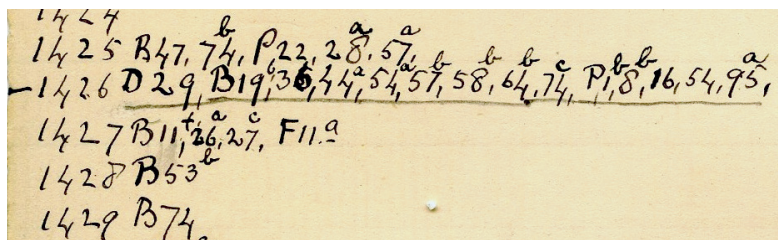 1424
1425 B47, 74ᵇ, P22, 28ᵃ, 57ᵃ,
1426 D29, B19ᵗ, 36, 44ᵃ, 54ᵃ, 57ᵇ, 58ᵇ, 64ᵇ, 74ᶜ, P1ᵇ, 8ᵇ, 16, 54, 95ᵃ,
1427 B11ᵗ, 26ᵃ, 27ᶜ, F11ᵃ
1428 B53ᵇ
1429 B74